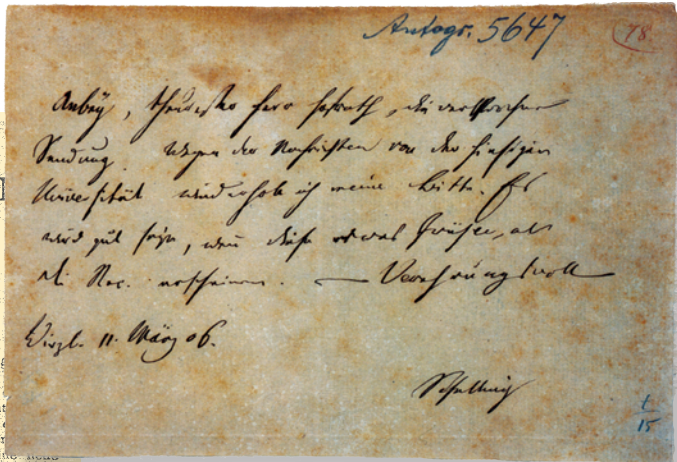 Autogr. 5647
78
Anbey, theurester Herr Hofrath, die versprochne
Sendung. Wegen der Nachrichten von der hiesigen
Universität wiederhole ich meine Bitte. Es
wird gut seyn, wenn diese etwas früher, als
die Rec. erscheinen. — Verehrungsvoll
Wirzb. 11. März 06.
Schelling
t
15